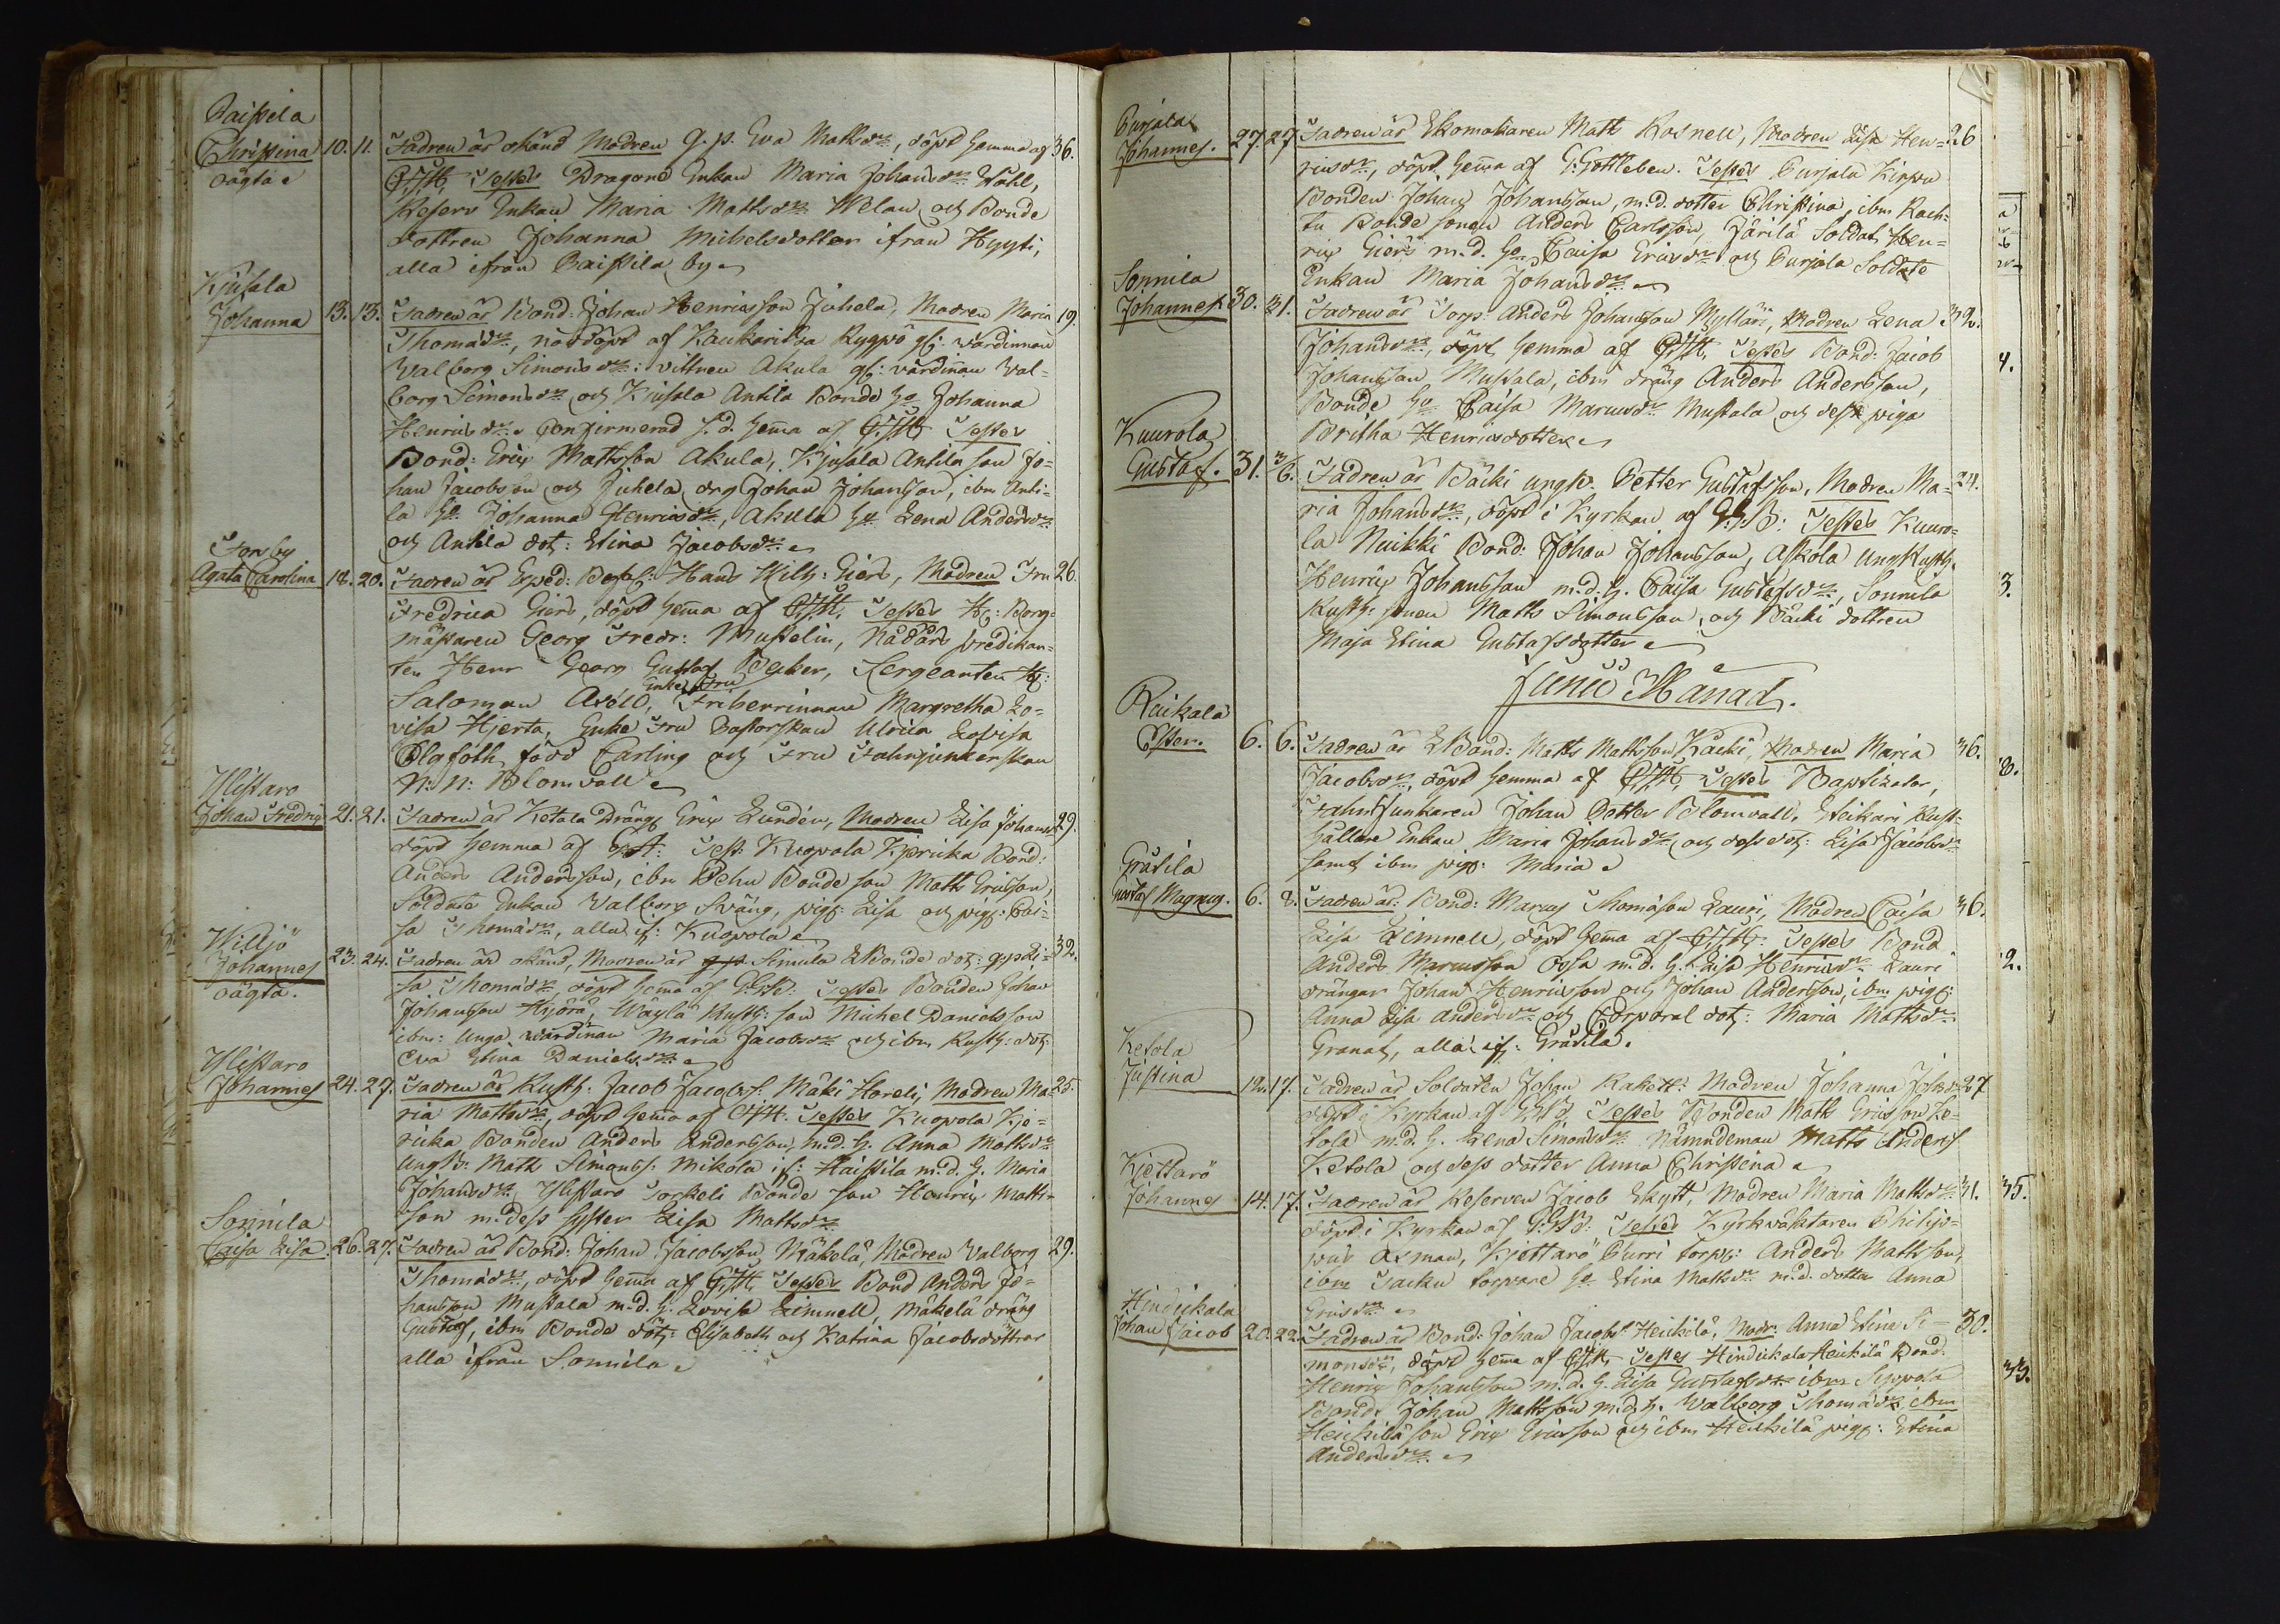 Paissela
Christina 10. 11. Fadren är okänd Modren q.p. Eva Mattsdr, döpt hemma af 36.
oägta
Testes Dragone Enkan Maria Johansdr Ståhl,
Reserv Enkan Maria Mattsdr Welan och Bonde
dottren Johanna Michelsdotter ifrån Hyyti,
alla ifrån Paissila by
Kjusala
Johanna 13. 13. Fadren är Bond: Johan Henricsson Juhela, Modren Maria 19.
Thomasdr, nöddöpt af Kaukarilla värdinnan
Walborg Simonsdr: vittnen Akula värdinnan Wal=
borg Simonsdr och Kjusala Antila Bonde h:o Johanna
Henricsdr Confirmerad s.d. hema af Testes
Bond: Eric Mattsson Akula, Kjusala Antila son Jo=
han Jacobsson och Juhela drg Johan Johansson, ibm Anti=
la h:o Johanna Henricsdr, Akula h:o Lena Andersdr
och Antila dot: Stina Jacobsdr
Forsby
Agata Carolina 18. 20. Fadren är Exped: Befalh: Hans Wilh: Giers, Modren Fru 26.
Fredrica Giers, döpt hema af Testes H: Borg=
mästaren Georg Fredr: Musselin, Nådårs predikan=
ten Herr Georg Gustaf Becker, Sergeanten H:
Enke Fru
Salomon Friherrinnan Margretha Lo=
visa Hjerta, Enke Fru Pastorskan Ulrica Lovisa
född Carling och Fru Fahnjunkerskan
N: N: Blomvall
Ylistaro
Johan Fredric 21. 21. Fadren är Ketala Dräng Eric Lundén, Modren Lisa Johansdr 29.
döpt hemma af Test: Kuopola Kyricka Bond:
Anders Andersson, ibm Pehu Bonde son Matts Ericsson,
Soldate Enkan Walborg Sväng, pig: Lisa och pig: Cai=
sa Thomasdr, alla if: Kuopola
Willjö
Johannes 23. 24. Fadren är okänd, Modren är Simula Bonde dot: Li= 32.
oägta.
sa Thomasdr döpt hema af Testes Bonden Johan
Johansson Hyörä, Wäylä Rusth: son Michel Danielsson
ibm: unga värdinan Maria Jacobsdr och ibm Rusth: dot:
Eva Stina Danielsdr
Ylistaro
Johannes 24. 27. Fadren är Rusth. Jacob Jacobs: Mäki Hoveli, Modren Ma= 25.
ria Mattsdr, döpt hema af Testes Kuopola Ky=
ricka Bonden Anders Andersson, m.d. h. Anna Mattsdr
Ungk: Matts Simonss: Mikola if: Haissila m.d. h. Maria
Johansdr, Ylistaro Torkeli Bonde son Henric Matts=
son m. dess syster Lisa Mattsdr
Sonnila
Caisa Lisa. 26. 27. Fadren är Bond: Johan Jacobsson Mäkelä, Modren Valborg 29.
Thomasdr, döpt hema af Testes Bond Anders Jo=
hansson Mustala m.d. h: Lovisa Limnell, Mäkelä dräng
Gustaf, ibm Bonde döt: Elisabeth och Katrina Jacobsdöttrar
alla ifrån Sonnila
Purjala
Johannes. 27. 27. Fadren är Skomakaren Matt Rosnell, Modren Lisa Hen= 26
ricsdr, döpt hema af G: Gottleben. Testes Purjala Kirppu
Bonden Johan Johansson, m.d. dotter Christina, ibm Rach=
tu Bonde sonen Anders Carlsson, Järilä Soldat Hen=
ric Giers m.d. h:o Caisa Ericsdr och Purjala Soldate
Enkan Maria Johansdr
Sonnila
Johannes 30. 31. Fadren är Torp: Anders Johansson Myllärs, Modren Lena 32.
Johansdr, döpt hemma af Testes Bond: Jacob
Johansson Mustala, ibm dräng Anders Andersson,
Bonde h:o Caisa Marcusdr Mustala och dess piga
Britha Henricsdotter
Kuurola
Gustaf. 31. 3/6. Fadren är Bäcki ungk. Petter Gustafsson, Modren Ma= 24.
ria Johansdr, döpt i Kyrkan af Testes Kuuro=
la Nuikki Bond: Johan Johansson, Askola Ung Rusth.
Henric Johansson m.d. h. Caisa Gustafsdr, Sonnila
Rusth: sonen Matts Simonsson, och Bäcki dottren
Maja Stina Gustafsdotter
Junii Månad.
Raikala
Ester. 6. 6. Fadren är Bond: Matts Mattsson Käcki, Modren Maria 36.
Jacobsdr, döpt hemma af Testes Baptizator,
Fahnjunkaren Johan Petter Blomvall, Heikari Rust=
hållare Enkan Maria Johansdr och dess dot: Lisa Jacobsdr
samt ibm pig: Maria
Gräsila
Gustaf Magnus. 6. 8. Fadren är Bond: Marcus Thomasson Lauri, Modren Caisa 36.
Lisa Limnell, döpt hema af Testes Bond
Anders Marcusson Ossa m.d. h. Lisa Henricsdr Lauri
drängar Johan Henricsson och Johan Andersson, ibm pig:
Anna Lisa Andersdr och Corporal dot: Maria Mattsdr
Granat, alla if: Gräsila.
Ketola
Justina 12. 17. Fadren är Soldaten Johan Raket: Modren Johanna Johsdr 27
döpt i Kyrkan af Testes Bonden Matts Ericsson Ke=
tola m.d. h. Lena Simonsdr Nämndeman Matts Anders
Ketola och dess dotter Anna Christina
Kjettarö
Johannes 14. 17. Fadren är Reserven Jacob Skytt, Modren Maria Mattsdr 31.
döpt i Kyrkan af Testes Kyrkväktaren Philip=
pus Asman, Kjettarö Purri torp: Anders Mattsson,
ibm Jacku torpare h:o Stina Mattsdr m.d. dotter Anna
Ericsdr
Hindickala
Johan Jacob 20. 22. Fadren är Bond: Johan Jacobs: Heickilä, Modr. Anna Stina Si= 30.
monsdr, döpt hema af Testes Hindickala Heickilä Bond:
Henric Johansson m.d. h. Lisa Gustafsdr ibm Seppola
Bond: Johan Mattsson m.d. h. Walborg Thomasdr, ibm
Heickilä son Eric Ericsson och ibm Heickilä pig: Stina
Andersdr.
4.
3.
8.
2.
35.
33.